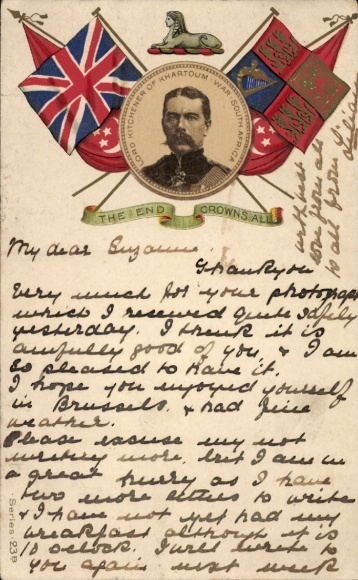 LORD KITCHENER OF KHARTOUM · WAR · SOUTH AFRICA
THE END CROWNS ALL
My dear Suzanne.
Thankyou
very much for your photograph
which I reseved quite safely
yesterday. I think it is
awfully good of you, & I am
so pleased to have it.
I hope you enjoyed yourself
in Brussels & had fine
weather.
Please excuse my not
writing more, but I am in
a great hurry as I have
two more letters to write
& I have not yet had my
breakfast although it is
10 oclock. I will write to
you again next week
with best
to all from
Series. 239